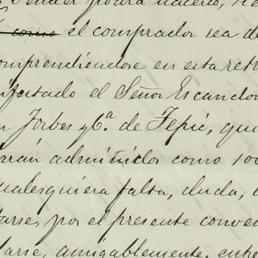 como el comprador sea de
comprendiendose en esta ret
ifestado el Señor Escandon
Forbes y Cª. de Tepic, qui
arán admitidos como soc
ualesquiera falta, duda,
tarse, por el presente conve
larse, amigablemente, entre